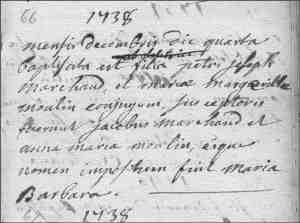 66 1738
mensis decembris die quarta
baptisata est filia petri joseph
marchand, et maria margaritta
moulin conjugum, susceptores
fuerunt jacobus marchand et
anna maria moulin, eique
nomen impositum fuit maria
Barbara.
1738